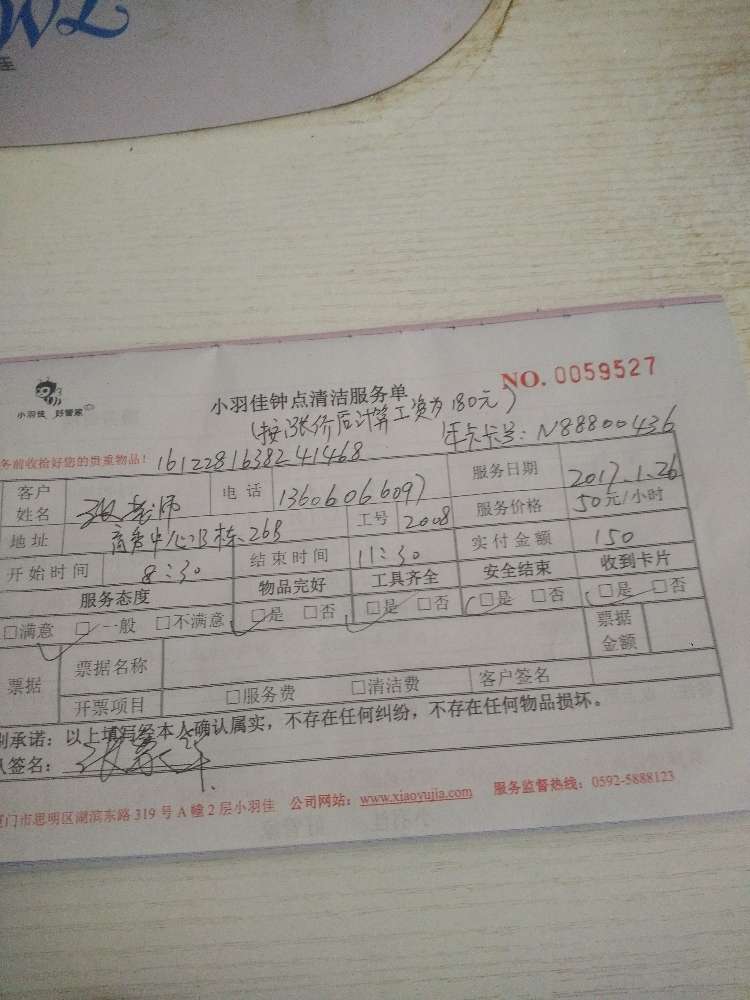 小羽佳 好管家
小羽佳钟点清洁服务单
NO. 0059527
(按涨价后计算工资为180元)
务前收拾好您的贵重物品!
16122816382241468
年卡卡号: N88800436
客户姓名
张老师
电话
13606066097
服务日期
2017.1.26
地址
栋26B
工号
2008
服务价格
50元/小时
开始时间
8:30
结束时间
11:30
实付金额
150
服务态度
物品完好
工具齐全
安全结束
收到卡片
□满意 □一般 □不满意
□是 □否
□是 □否
□是 □否
□是 □否
票据
票据名称
票据金额
开票项目
□服务费 □清洁费
客户签名
承诺:以上填写经本人确认属实,不存在任何纠纷,不存在任何物品损坏。
签名:
门市思明区湖滨东路 319 号 A 幢 2 层小羽佳 公司网站:www.xiaoyujia.com 服务监督热线:0592-5888123